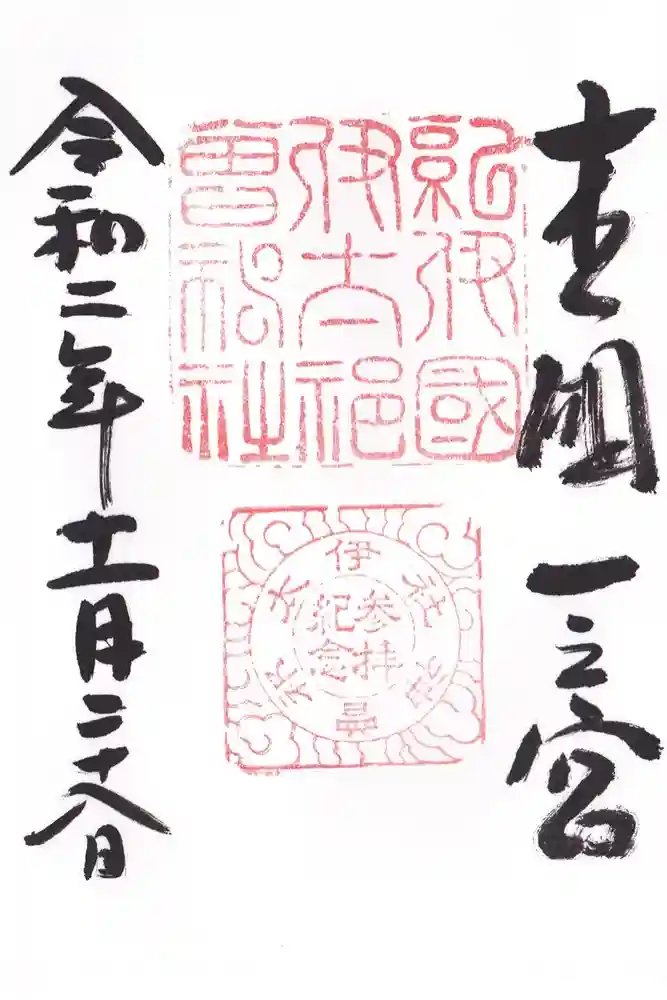 国一之宮
紀伊國
伊太祁
曾神社
伊太祁曽神社
参拝
紀念
令和二年十一月二十八日